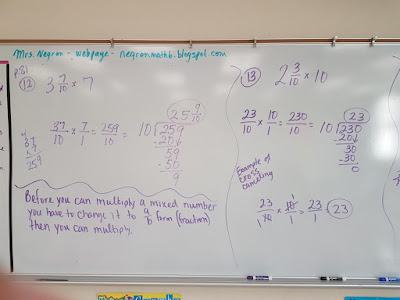 Mrs. Negron - webpage - negronmath6.blogspot.com
p.81
(12) 3 7/10 × 7
25 9/10
37/10 × 7/1 = 259/10
10 259
-20↓
59
-50
9
4
37
× 7
259
Before you can multiply a mixed number
you have to change it to a/b form (fraction)
then you can multiply.
(13) 2 3/10 × 10
23
23/10 × 10/1 = 230/10
10 230
20↓
30
-30
0
Example of
cross
canceling
23/10 1 × 10 1/1 = 23/1 = 23